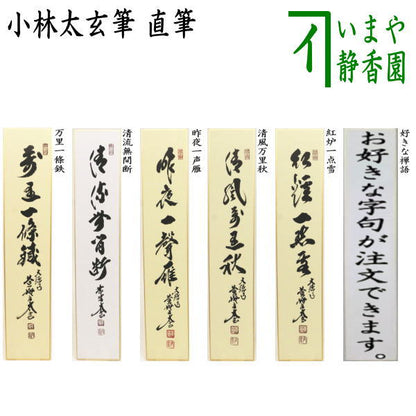 小林太玄筆 直筆
いまや
静香園
万里一條鉄
万里一條鐵
清流無間断
清流無間断
昨夜一声雁
昨夜一聲雁
清風万里秋
清風万里秋
紅炉一点雪
紅爐一点雪
好きな禅語
お好きな字句が注文できます。